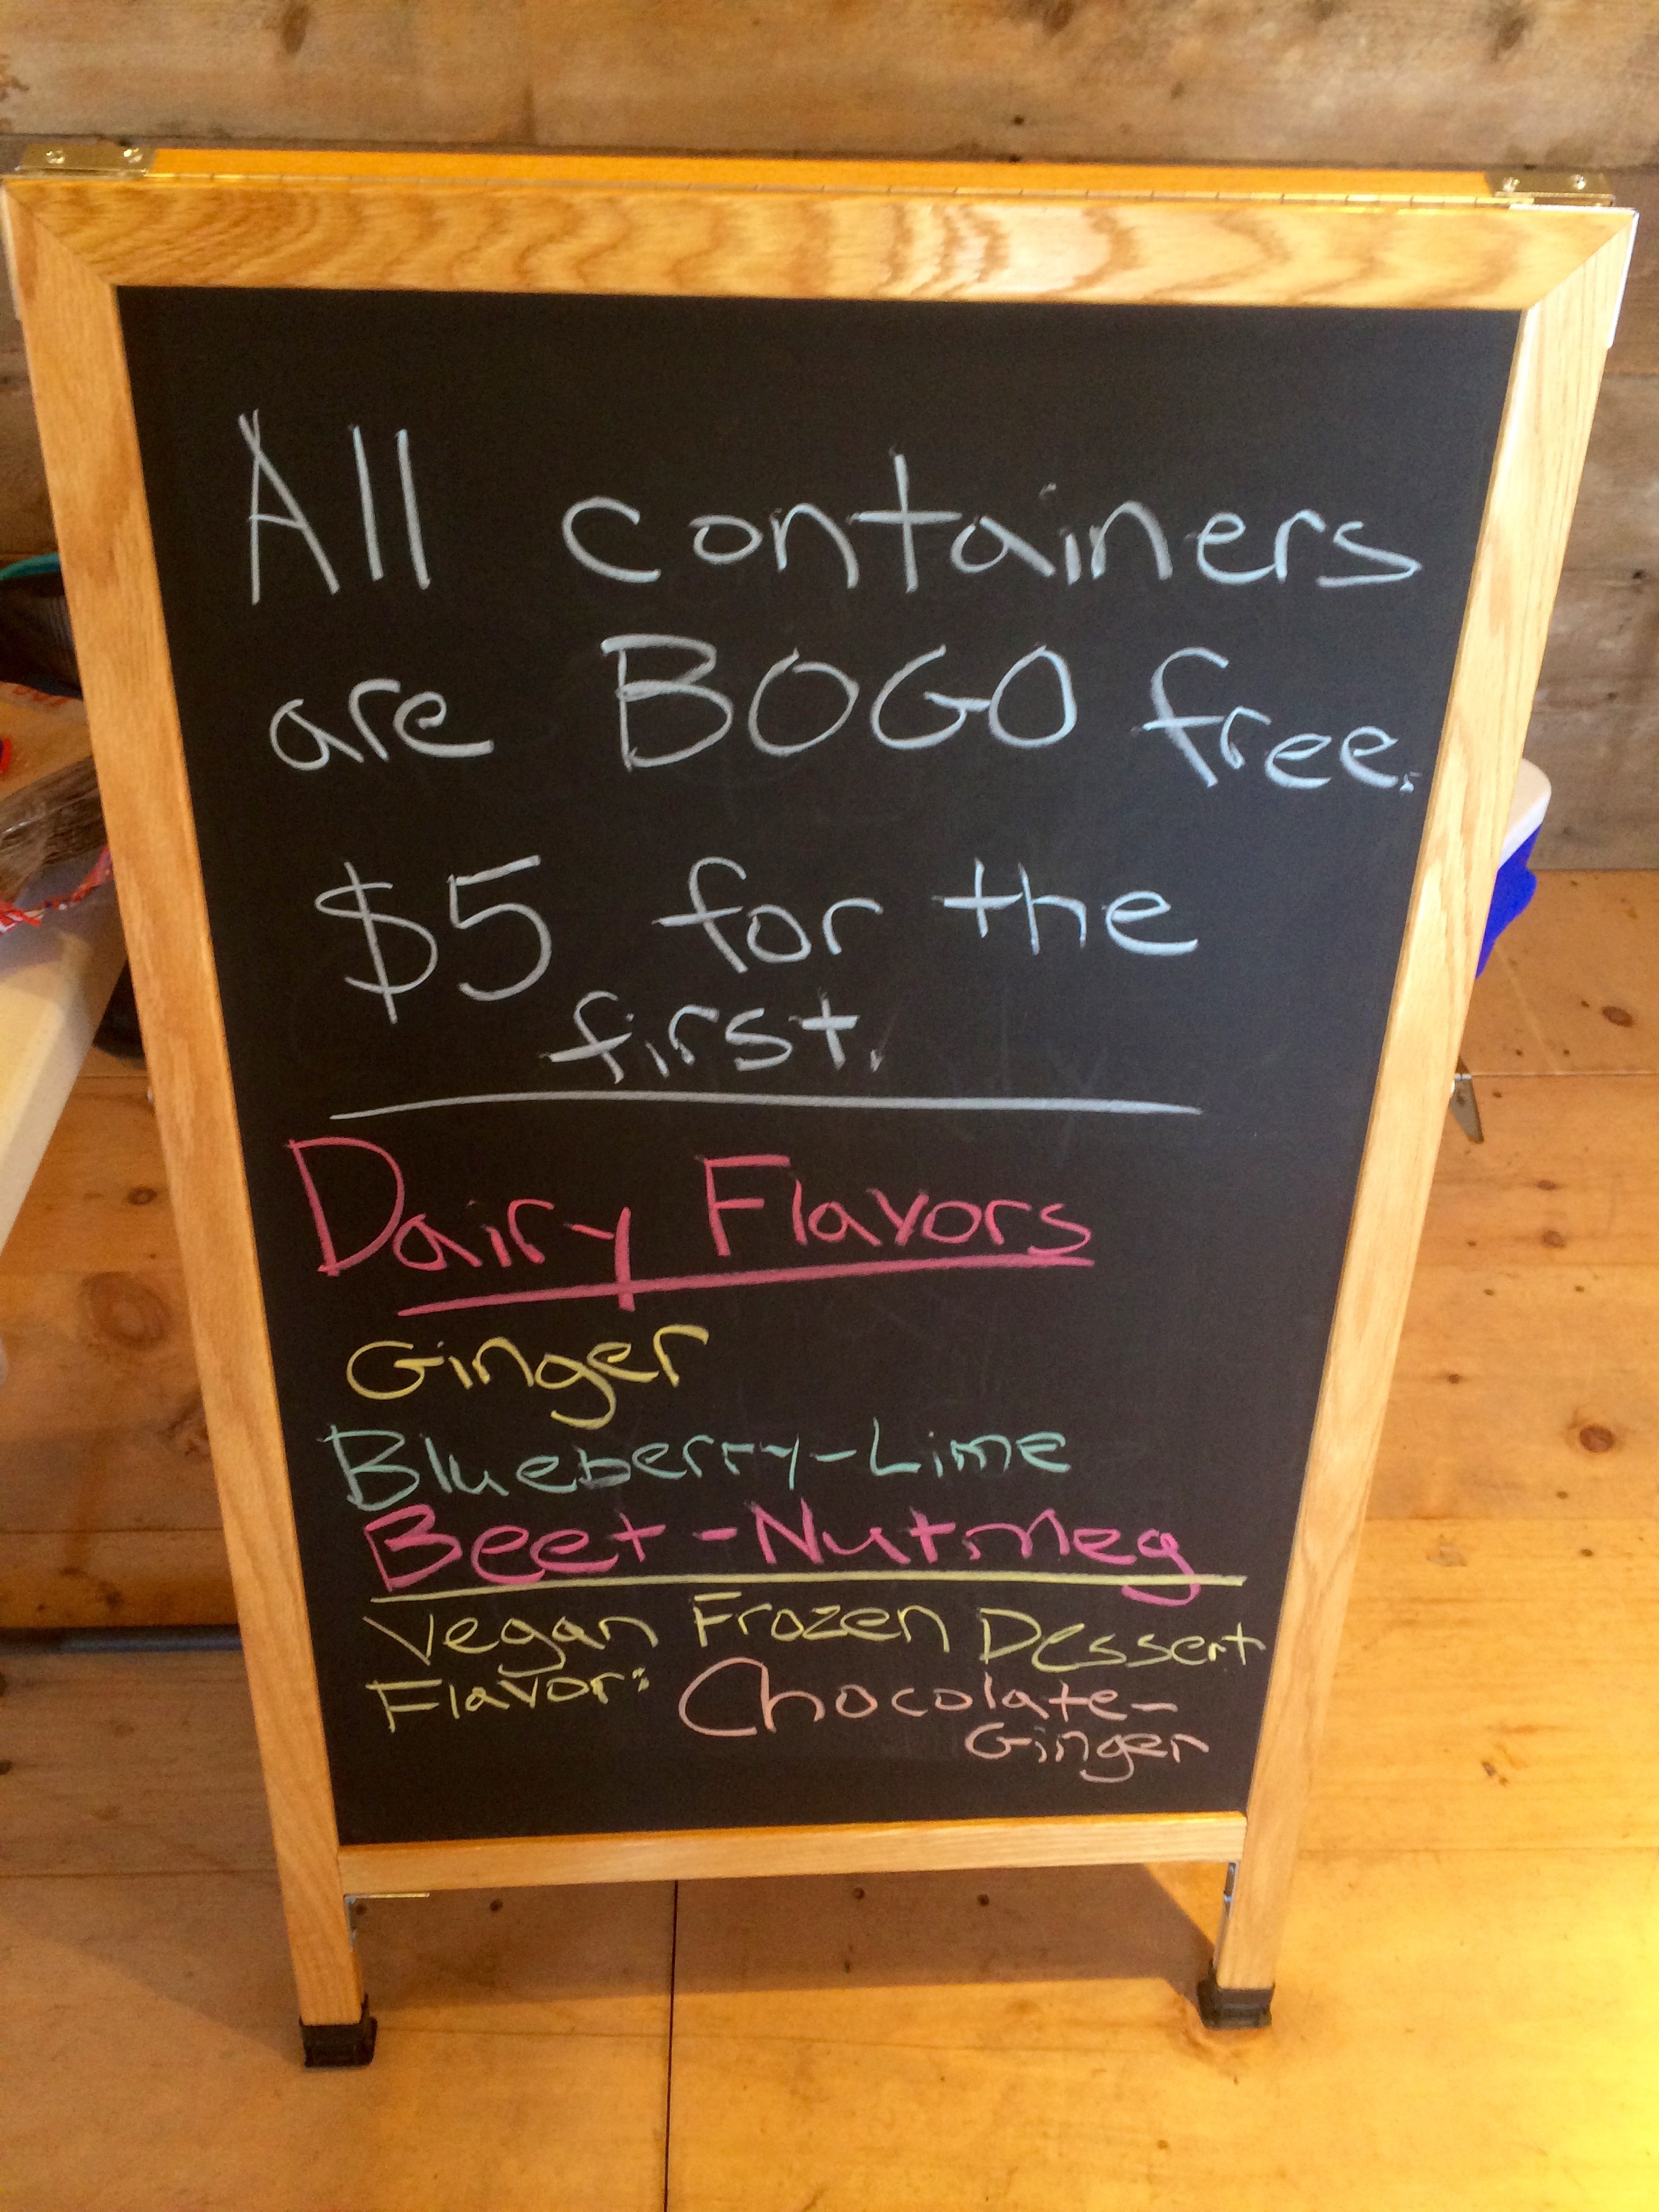 All containers
are BOGO free.
$5 for the
first.
Dairy Flavors
Ginger
Blueberry-Lime
Beet-Nutmeg
Vegan Frozen Dessert
Flavor: Chocolate-
Ginger